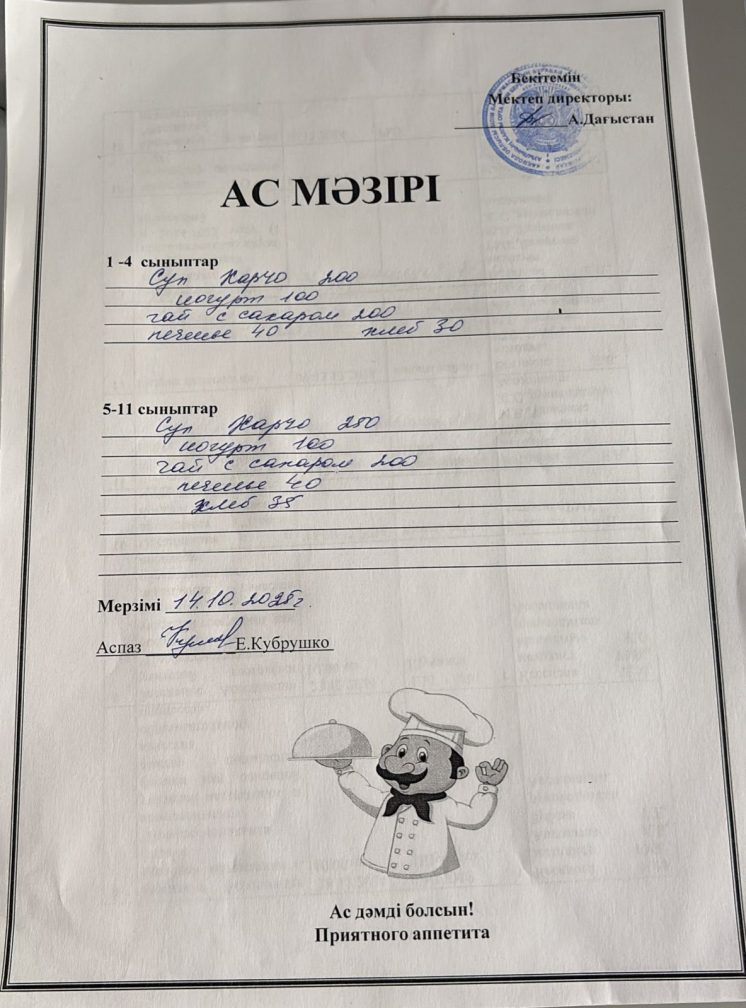 Бекітемін
Мектеп директоры:
А.Дағыстан
АС МӘЗІРІ
1 -4 сыныптар
Суп Харчо 200
йогурт 100
чай с сахаром 200
печенье 40 хлеб 30
5-11 сыныптар
Суп Харчо 250
йогурт 100
чай с сахаром 200
печенье 40
хлеб 35
Мерзімі 14.10.2025г.
Аспаз Е.Кубрушко
Ас дәмді болсын!
Приятного аппетита